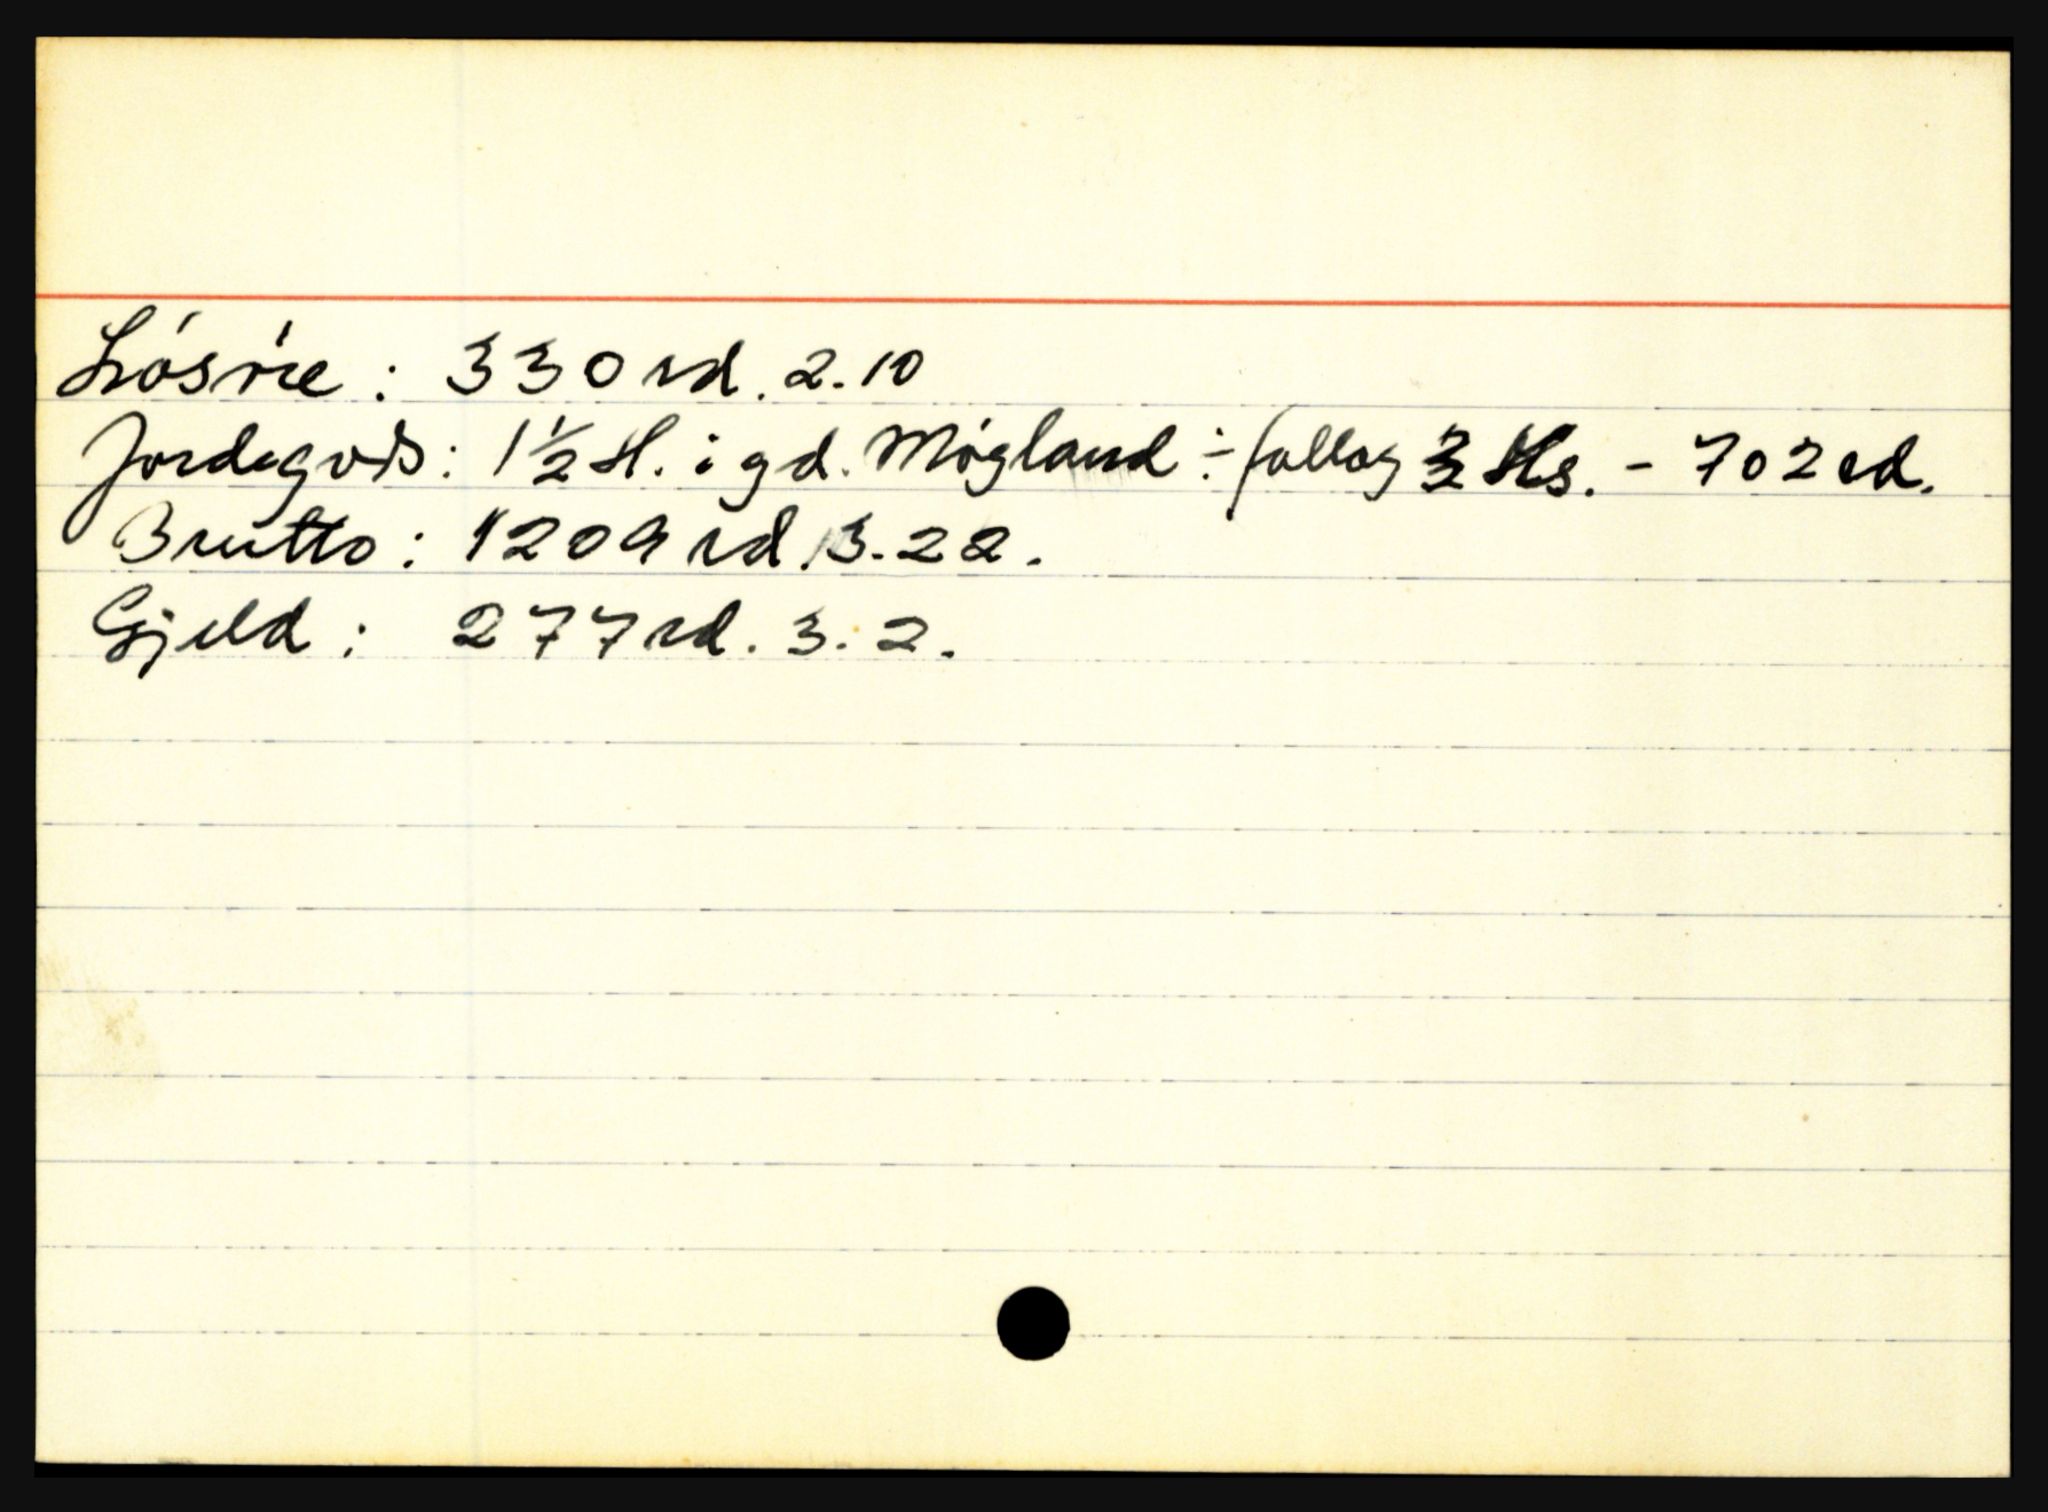 Lösöre: 330 rd. 2.10
Jordegods: 1½ H. i gd. Mögland ÷ follog 3 Hs. - 702 rd.
Brutto: 1209 rd. 3. 22.
Gjeld: 277 rd. 3. 2.